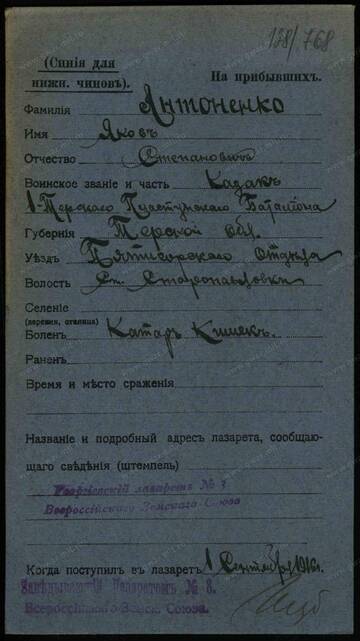 128/768
(Синія для
нижн. чиновъ).
На прибывшихъ.
Фамилія Антоненко
Имя Яковъ
Отчество Степановичъ
Воинское званіе и часть Казакъ
1-Терскаго Пластунскаго Баталіона
Губернія Терской Обл.
Уѣздъ Пятигорскаго Отдѣла
Волость Ст. Старопавловки
Селеніе
(деревня, станица)
Боленъ Катаръ Кишекъ.
Раненъ
Время и мѣсто сраженія
Названіе и подробный адресъ лазарета, сообщаю-
щаго свѣдѣнія (штемпель)
Георгіевскій лазаретъ №
Всероссійскаго Земскаго Союза
Когда поступилъ въ лазаретъ 1 Сентября 1916г.
Завѣдывающій Лазаретомъ № 3.
Всероссійскаго Земск. Союза.